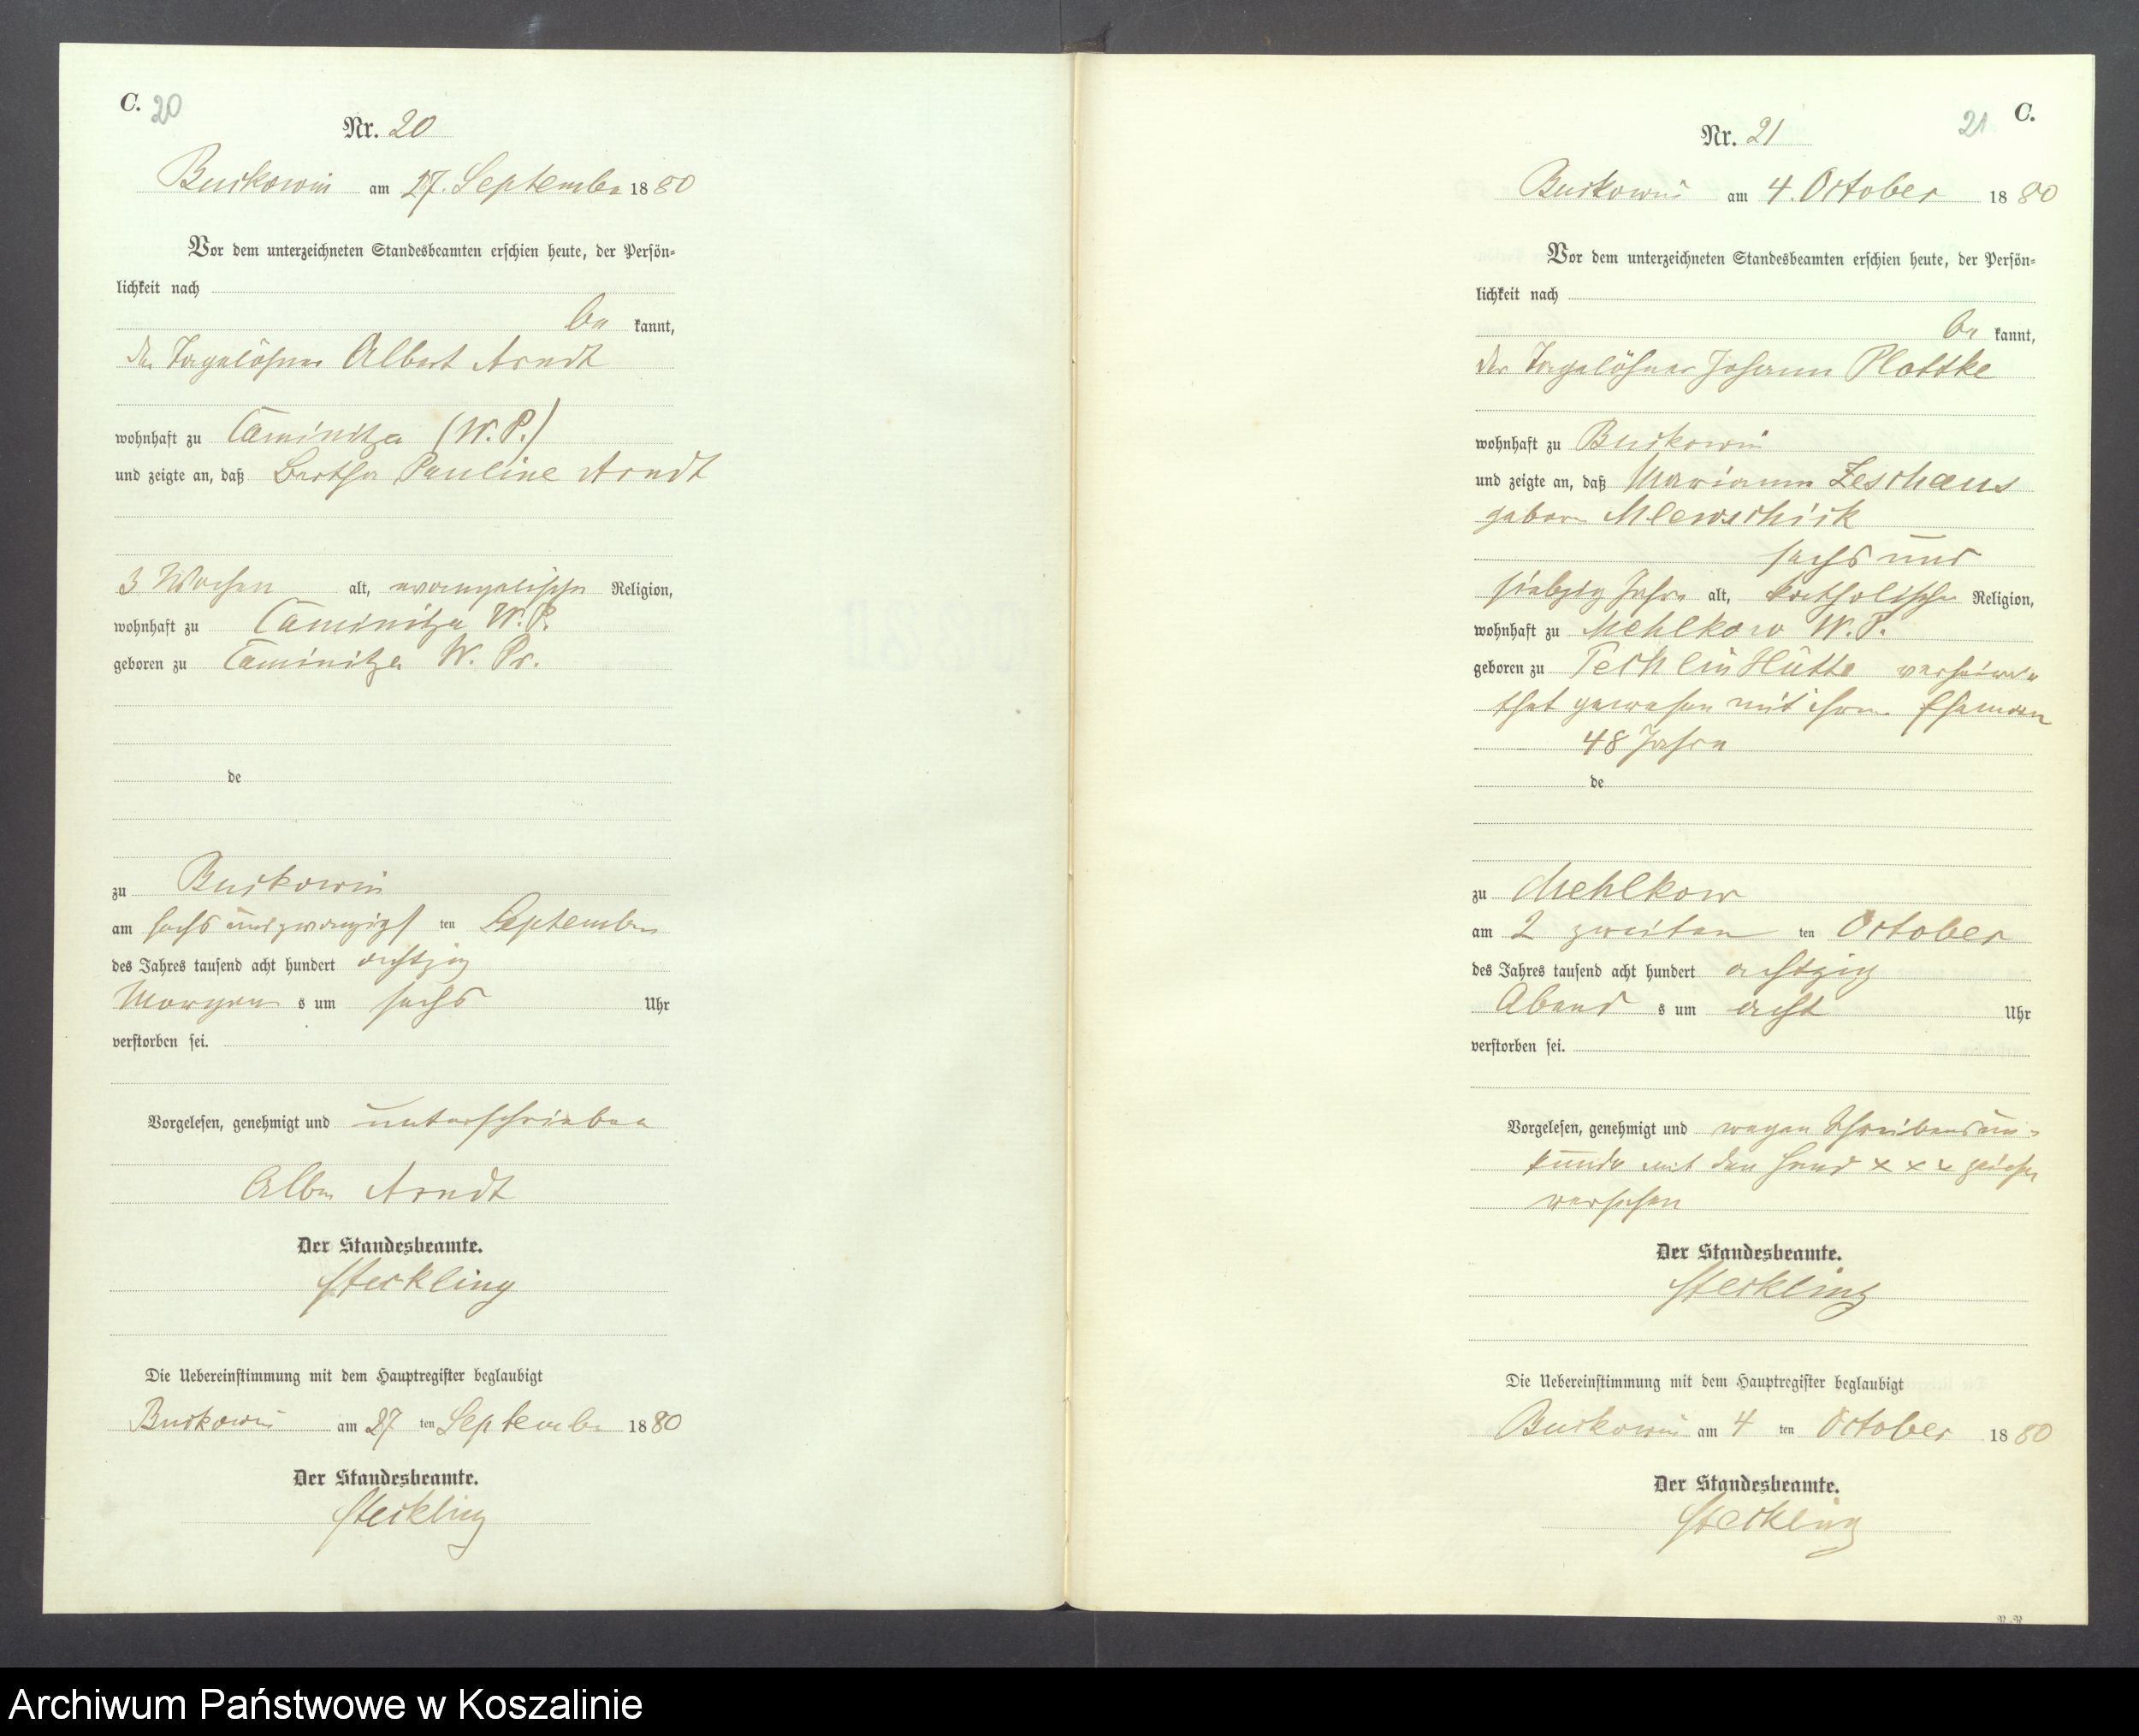 C. 20
Nr. 20
Buckowin am 27. September 1880
Vor dem unterzeichneten Standesbeamten erschien heute, der Persön-
lichkeit nach
be kannt,
der Tagelöhner Albert Arndt
wohnhaft zu Caminitza (W. P.)
und zeigte an, daß Bertha Pauline Arndt
3 Wochen alt, evangelischer Religion,
wohnhaft zu Caminitza W. P.
geboren zu Caminitza W. Pr.
de
zu Buckowin
am sechs und zwanzigst ten September
des Jahres tausend acht hundert achtzig
Morgen s um sechs Uhr
verstorben sei.
Vorgelesen, genehmigt und unterschrieben
Arndt
Der Standesbeamte.
Steckling
Die Uebereinstimmung mit dem Hauptregister beglaubigt
Buckowin am 27 ten September 1880
Der Standesbeamte.
Steckling
21 C.
Nr. 21
Buckowin am 4. October 1880
Vor dem unterzeichneten Standesbeamten erschien heute, der Persön-
lichkeit nach
be kannt,
der Tagelöhner Johann Plottke
wohnhaft zu Buckowin
und zeigte an, daß Mariann Zeschaus
geborn Mlewschick
sechs und
siebzig Jahre alt, katholischer Religion,
wohnhaft zu Mehlkow W. P.
geboren zu Techlin Hütte verheira-
thet gewesen mit ihrem Ehemann
48 Jahre
de
zu Mehlkow
am 2 zweiten ten October
des Jahres tausend acht hundert achtzig
Abend s um acht Uhr
verstorben sei.
Vorgelesen, genehmigt und wegen Schreibensun-
kunde mit den Hand x x x zeichen
versehen
Der Standesbeamte.
Steckling
Die Uebereinstimmung mit dem Hauptregister beglaubigt
Buckowin am 4 ten October 1880
Der Standesbeamte.
Steckling
Archiwum Państwowe w Koszalinie